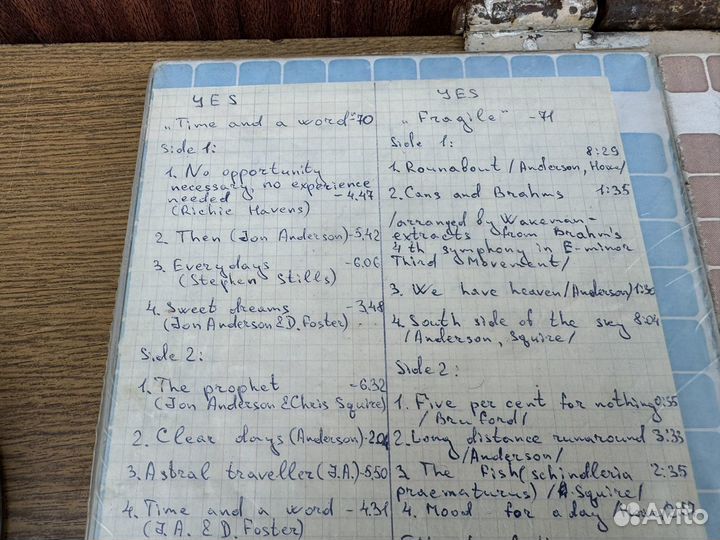 YES
„Time and a word"-70
Side 1:
1. No opportunity
necessary, no experience
needed - 4.47
(Richie Havens)
2. Then (Jon Anderson)-5.42
3. Everydays -6.06
(Stephen Stills)
4. Sweet dreams -3,48
(Jon Anderson & D. Foster)
Side 2:
1. The prophet -6.32
(Jon Anderson & Chris Squire)
2. Clear days (Anderson)-2.04
3. Astral traveller (J.A.)-5,50
4. Time and a word -4.31
(J.A. & D. Foster)
YES
„Fragile" -71
Side 1:
1. Rounabout /Anderson, Howe/ 8:29
2. Cans and Brahms 1:35
/arranged by Wakeman-
extracts from Brahm's
4th symphony in E-minor
Third Movement/
3. We have heaven /Anderson/ 1:30
4. South side of the sky 8:04
/Anderson, Squire/
Side 2:
1. Five per cent for nothing 0:35
/Bruford/
2. Long distance runaround 3:33
/Anderson/
3. The Fish (schindleria 2:35
praematurus) /Squire/
4. Mood for a day
Avito